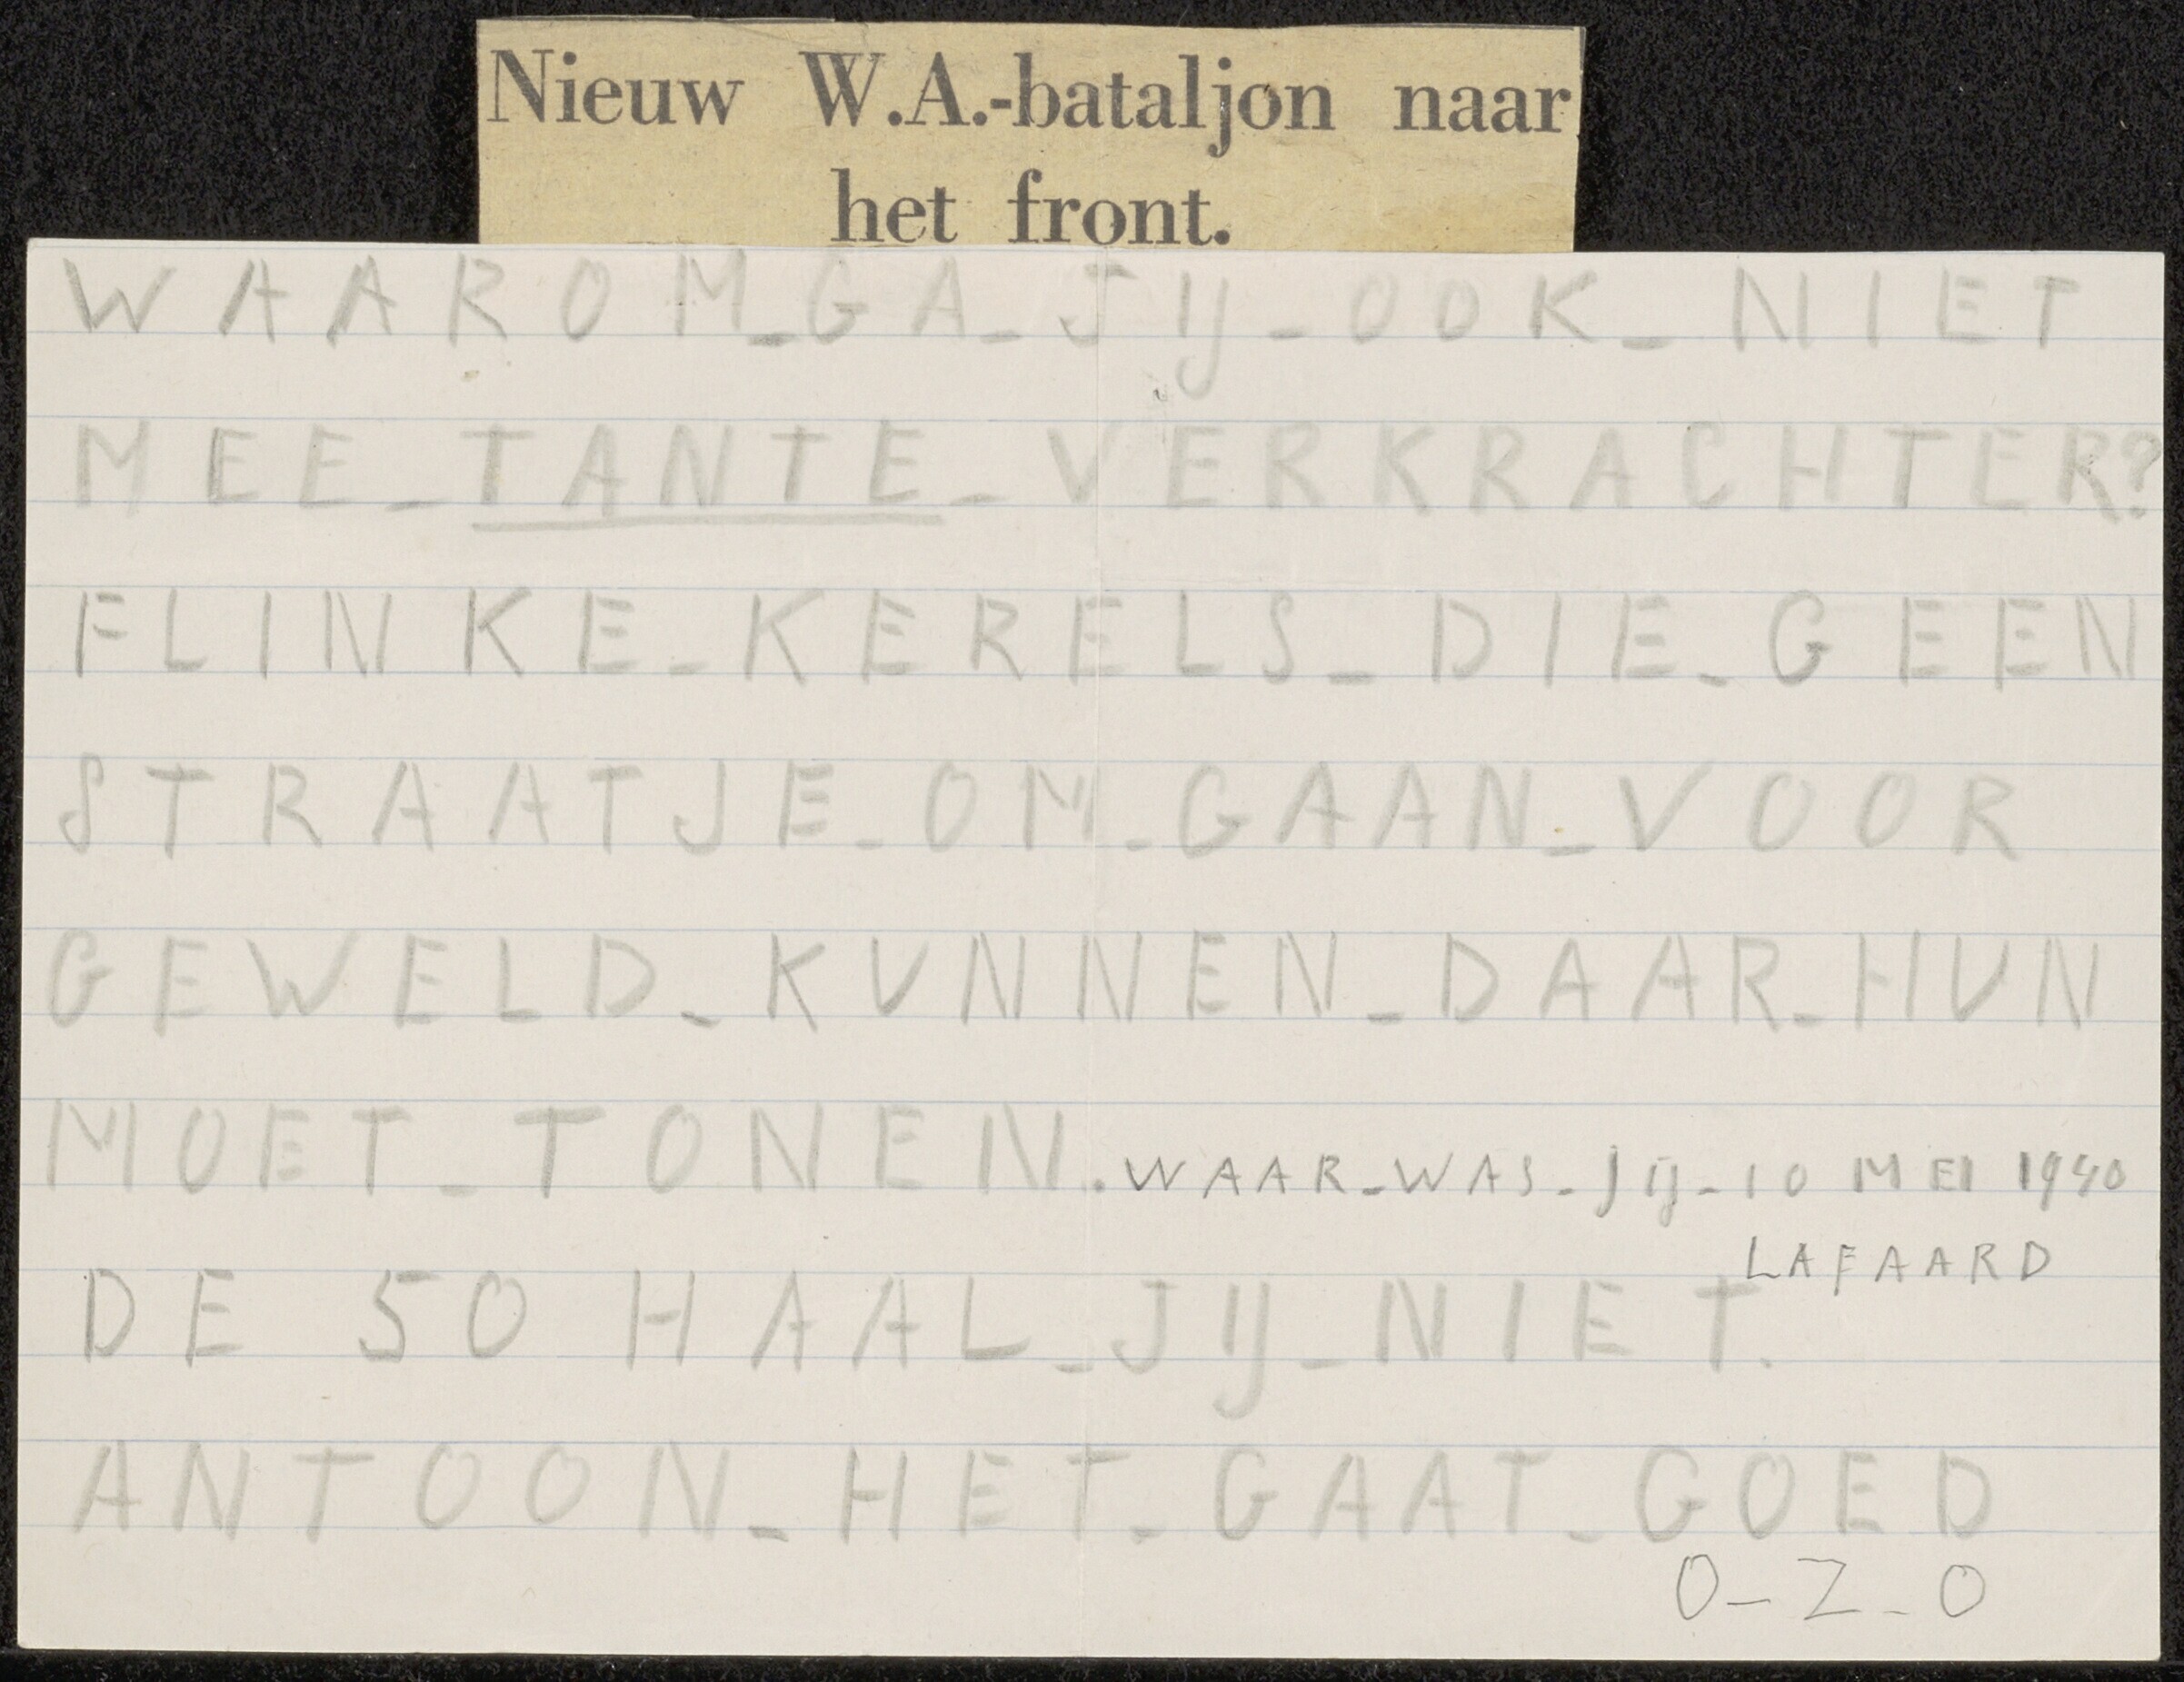 Nieuw W.A.-bataljon naar
het front.
WAAROM_GA_JIJ_OOK_NIET
MEE_TANTE_VERKRACHTER?
FLINKE_KERELS_DIE_GEEN
STRAATJE_OM_GAAN_VOOR
GEWELD_KUNNEN_DAAR_HUN
MOET_TONEN. WAAR_WAS_JIJ_10 MEI 1940
LAFAARD
DE 50 HAAL_JIJ_NIET.
ANTOON_HET_GAAT_GOED
O_Z_O